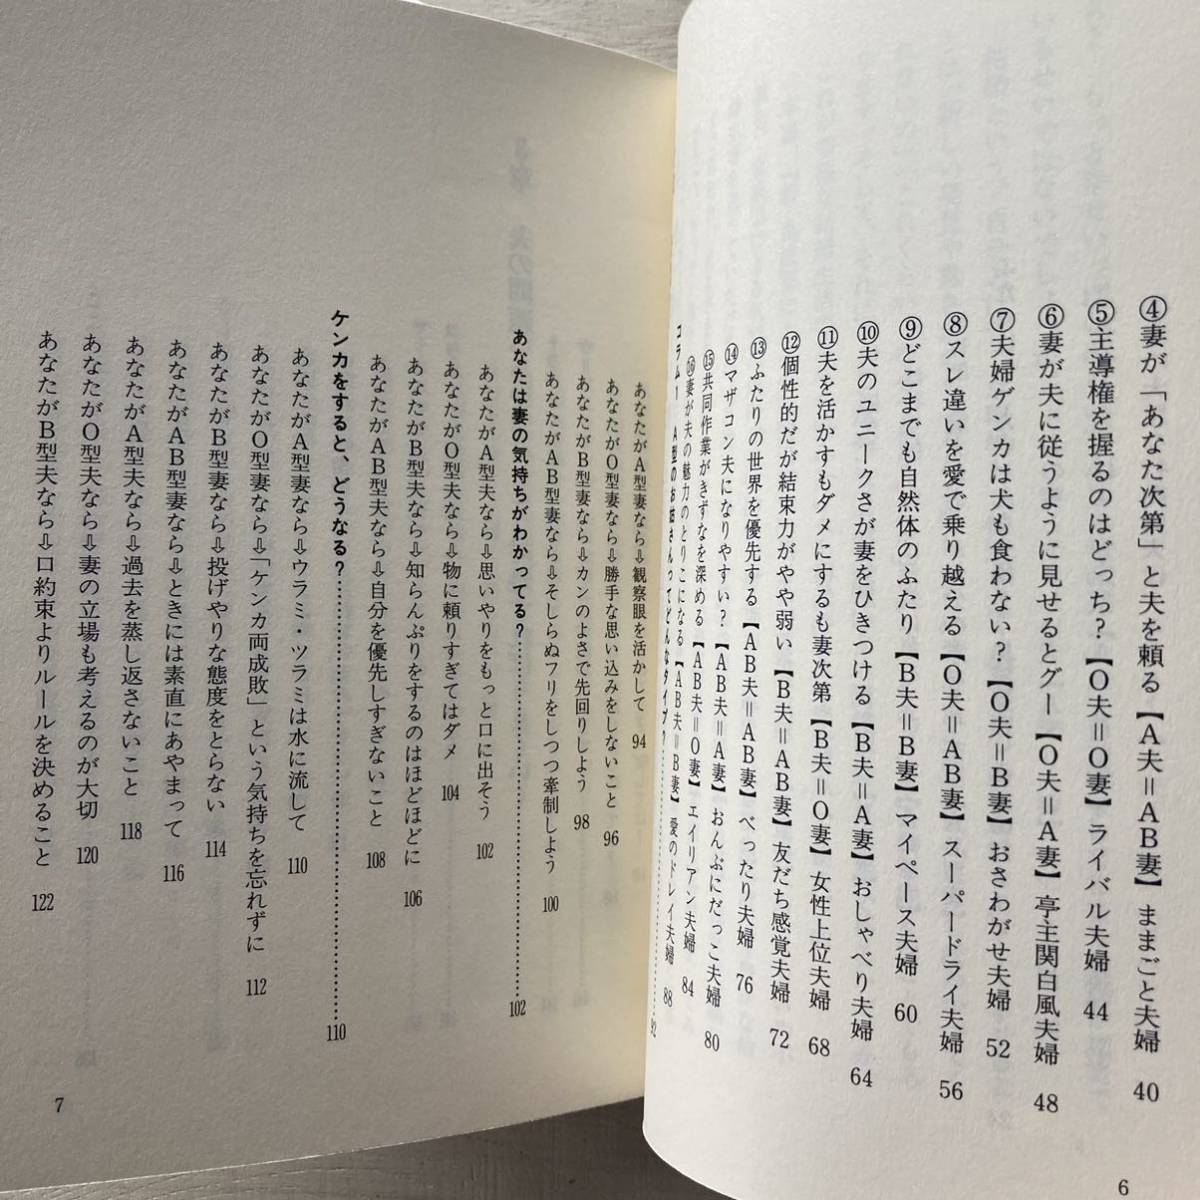 ④妻が「あなた次第」と夫を頼る【A夫＝AB妻】ままごと夫婦 40
⑤主導権を握るのはどっち？【O夫＝O妻】ライバル夫婦 44
⑥妻が夫に従うように見せるとグー【O夫＝A妻】亭主関白風夫婦 48
⑦夫婦ゲンカは犬も食わない？【O夫＝B妻】おさわがせ夫婦 52
⑧スレ違いを愛で乗り越える【O夫＝AB妻】スーパードライ夫婦 56
⑨どこまでも自然体のふたり【B夫＝B妻】マイペース夫婦 60
⑩夫のユニークさが妻をひきつける【B夫＝A妻】おしゃべり夫婦 64
⑪夫を活かすもダメにするも妻次第【B夫＝O妻】女性上位夫婦 68
⑫個性的だが結束力がやや弱い【B夫＝AB妻】友だち感覚夫婦 72
⑬ふたりの世界を優先する【AB夫＝AB妻】べったり夫婦 76
⑭マザコン夫になりやすい？【AB夫＝A妻】おんぶにだっこ夫婦 80
⑮共同作業がきずなを深める【AB夫＝O妻】エイリアン夫婦 84
⑯妻が夫の魅力のとりこになる【AB夫＝B妻】愛のドレイ夫婦 88
コラム1 A型のお姑さんってどんなタイプ？…………92
6
あなたがA型妻なら⇨観察眼を活かして 94
あなたがO型妻なら⇨勝手な思い込みをしないこと 96
あなたがB型妻なら⇨カンのよさで先回りしよう 98
あなたがAB型妻なら⇨そしらぬフリをしつつ牽制しよう 100
あなたは妻の気持ちがわかってる？…………102
あなたがA型夫なら⇨思いやりをもっと口に出そう 102
あなたがO型夫なら⇨物に頼りすぎてはダメ 104
あなたがB型夫なら⇨知らんぷりをするのはほどほどに 106
あなたがAB型夫なら⇨自分を優先しすぎないこと 108
ケンカをすると、どうなる？…………110
あなたがA型妻なら⇨ウラミ・ツラミは水に流して 110
あなたがO型妻なら⇨「ケンカ両成敗」という気持ちを忘れずに 112
あなたがB型妻なら⇨投げやりな態度をとらない 114
あなたがAB型妻なら⇨ときには素直にあやまって 116
あなたがA型夫なら⇨過去を蒸し返さないこと 118
あなたがO型夫なら⇨妻の立場も考えるのが大切 120
あなたがB型夫なら⇨口約束よりルールを決めること 122
7